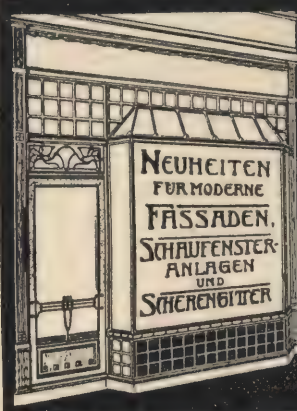 NEUHEITEN
FÜR MODERNE
FASSADEN,
SCHAUFENSTER-
ANLAGEN
UND
SCHERENGITTER